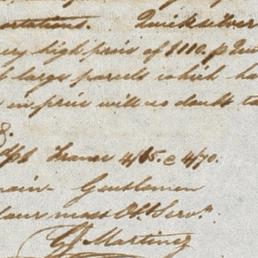 ortations. Quicksilver
very high price of $110. p
larger parcels which ha
in price will no doubt ta
France 4/65. @ 4/70.
main Gentlemen
Your most Obt Servt.
Martinez